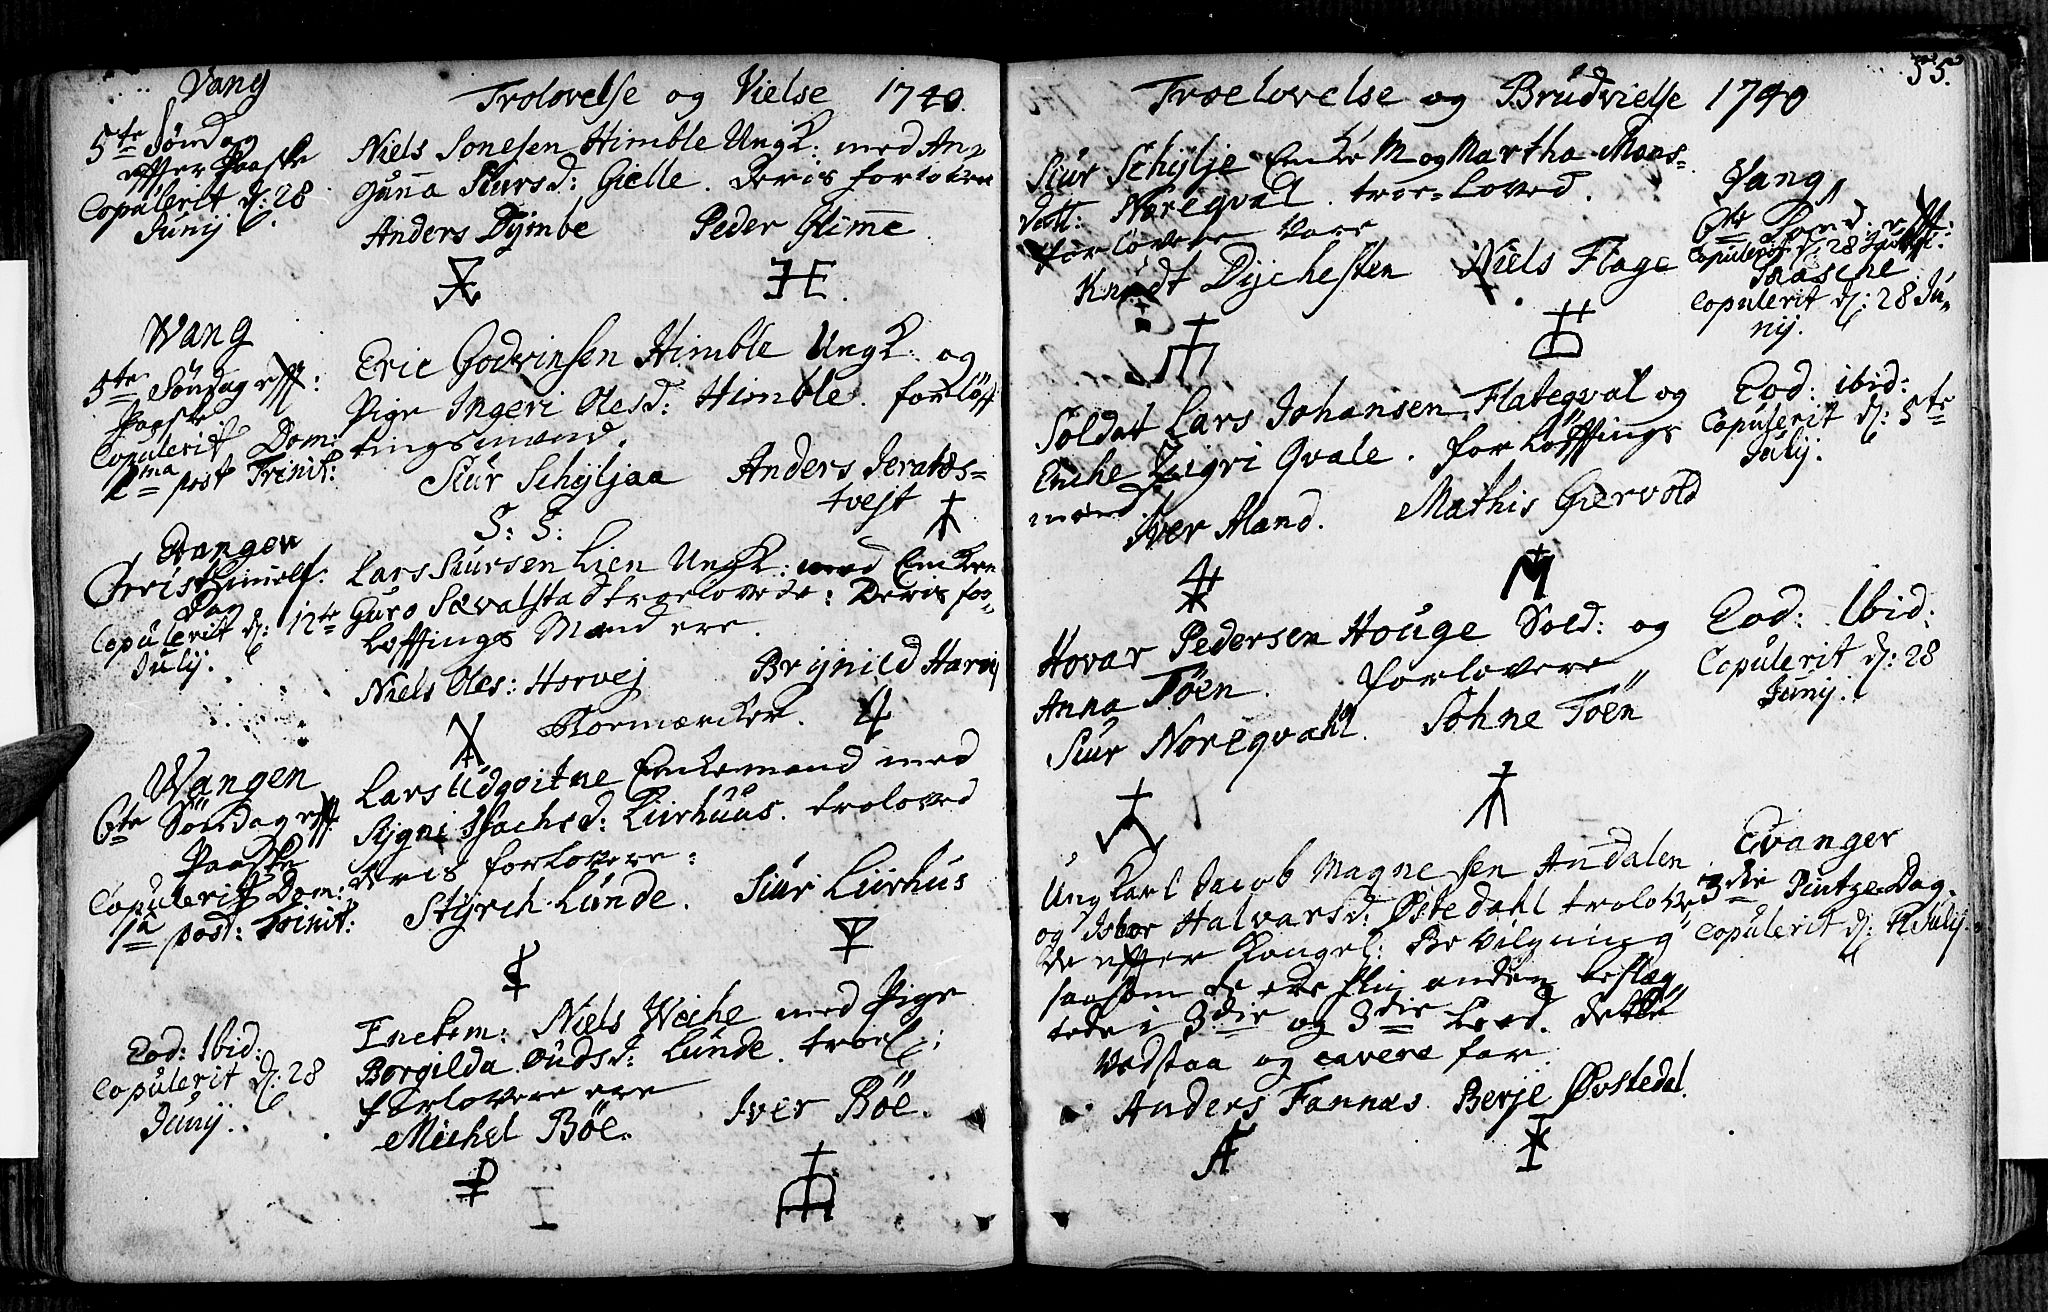 Vang
Trolovelse og Vielse 1740.
5te Søndag
effter Paaske
Copulerit d: 28
Junij
Niels Sonesen Himble Ungk: med An-
gunna Siursd: Gielle. Deris forlovere
Anders Dymbe Peder Gimme
Wang
5te Søndag eff:
Paaske
Copulerit Dom:
1ma post Trinit:
Eric Godvinsen Himble Ungk: og
Pige Ingeri Olesd: Himble. forløff
tingsmænd.
Siur Schyljaa Anders Jerales-
tvejt
S: S:
Evangen
Christi Himelf:
Dag
Copulerit d: 12te
Julij.
Lars Siursen Lien Ungk: med Encken
Guro Sævalstad troelovede: Deris for-
løffings Mænd ere.
Niels Oles: Horvej Brynild Harvej
Bormærcker.
Wangen
6te Söndag eff.
Paaske
Copulerit Dom:
1ma post: Trinit:
Lars Udqvitne Enkemand med
Sygni Isachsd: Liirhuus. troloved
Deris forlovere:
Styrch Lunde. Siur Liirhus
Eod: Ibid:
Copulerit d: 28
Junij.
Enckem: Niels Weche med Pige
Borgilda Oudsd: Lunde. troel:
forlovere ere
Michel Böe. Iver Böe.
55.
Troelovelse og Brudvielse 1740
Siur Schylje Encke M og Martha Mons-
datt: Noreqval. troe-Loved.
forlovere vare
Knudt Dychesten Niels Flage
Vang
6te Sond: efft:
Copulerit d: 28 Junij:
Paasche
Copulerit d: 28 Ju-
nij.
Soldat Lars Johansen Flateqval og
Enche Ingri Qvale. forløffings
mænd
Iver Aland. Mathis Giervold
Eod: ibid:
Copulerit d: 5te
Julij.
Hovar Pedersen Houge Sold: og
Anna Töen. forlovere
Siur Noreqvahl. Sohne Töen
Eod: Ibid:
Copulerit d: 28
Junij.
Ungkarl Jacob Magnesen Andalen
og Isbor Halvarsd: Østedahl trolove
de effter Kongel: Bevilgning
saasom de ere hin anden beslæg
tede i 3die og 3die Leed. dette
Vedstaa og cavere for
Anders Fannæs Berje Øvstedal.
Evanger
3die Pintze-Dag.
Copulerit d: Julij.